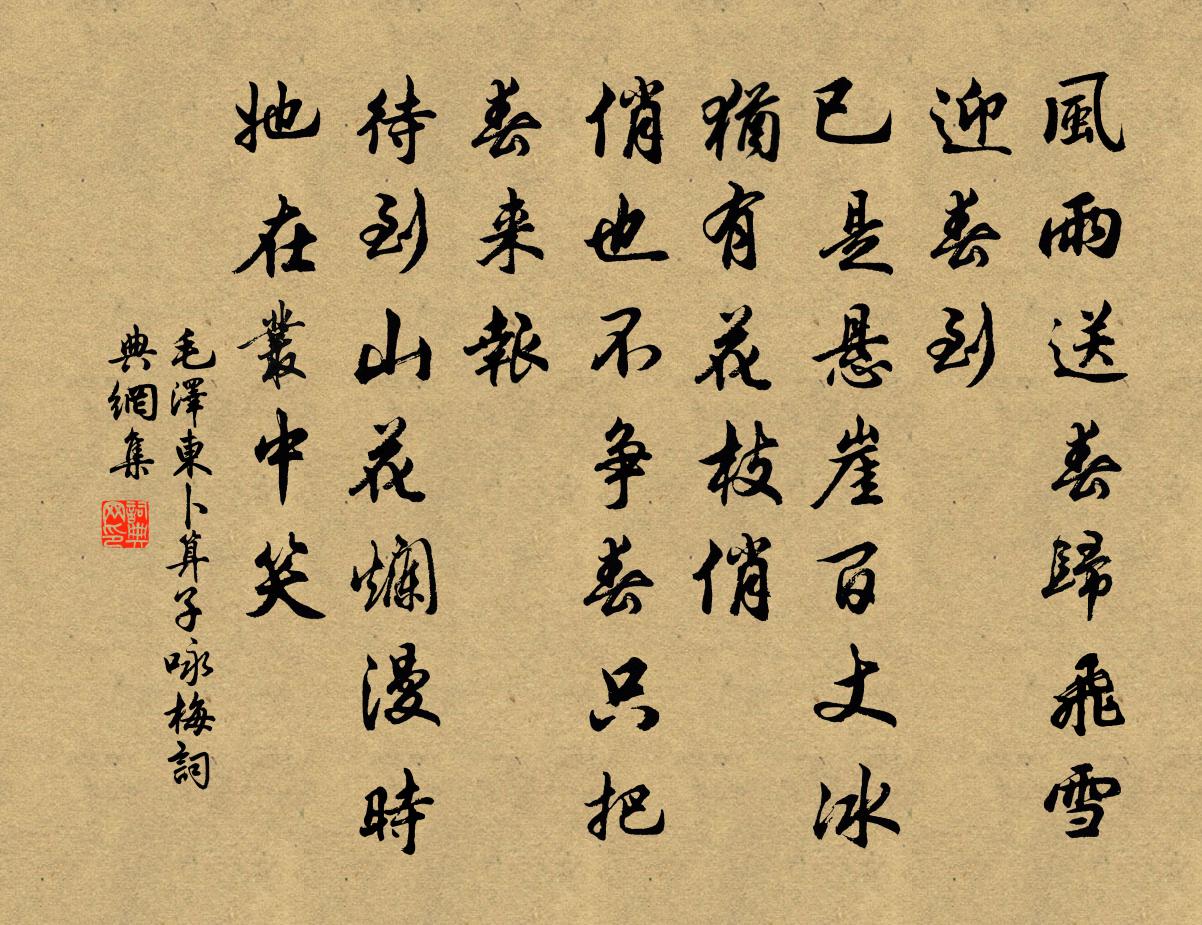 風雨送春歸飛雪
迎春到
已是懸崖百丈冰
猶有花枝俏
俏也不争春只把
春来報
待到山花爛漫時
她在叢中笑
毛澤東卜算子咏梅詞
典網集
詞典
网印